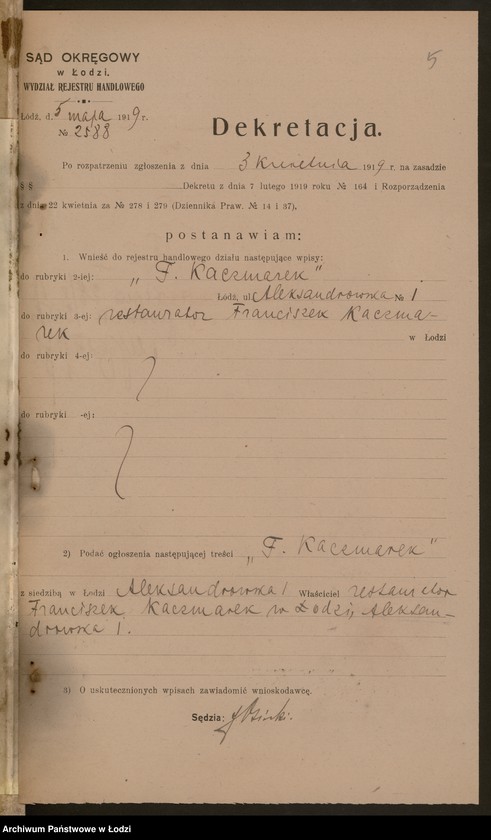 5
SĄD OKRĘGOWY
w Łodzi.
WYDZIAŁ REJESTRU HANDLOWEGO
Łódź, d. 5 maja 1919 r.
№ 2588
Dekretacja.
Po rozpatrzeniu zgłoszenia z dnia 3 kwietnia 1919 r. na zasadzie
§ § Dekretu z dnia 7 lutego 1919 roku № 164 i Rozporządzenia
z dnia 22 kwietnia za № 278 i 279 (Dziennika Praw. № 14 i 37).
postanawiam:
1. Wnieść do rejestru handlowego działu następujące wpisy:
do rubryki 2-iej: „F. Kaczmarek"
Łódź, ul. Aleksandrowska № 1
do rubryki 3-ej: restaurator Franciszek Kaczma-
rek w Łodzi
do rubryki 4-ej:
do rubryki -ej:
2) Podać ogłoszenia następującej treści „F. Kaczmarek"
z siedzibą w Łodzi Aleksandrowska 1 Właściciel restaurator
Franciszek Kaczmarek w Łodzi, Aleksan-
drowska 1.
3) O uskutecznionych wpisach zawiadomić wnioskodawcę.
Sędzia:
Archiwum Państwowe w Łodzi